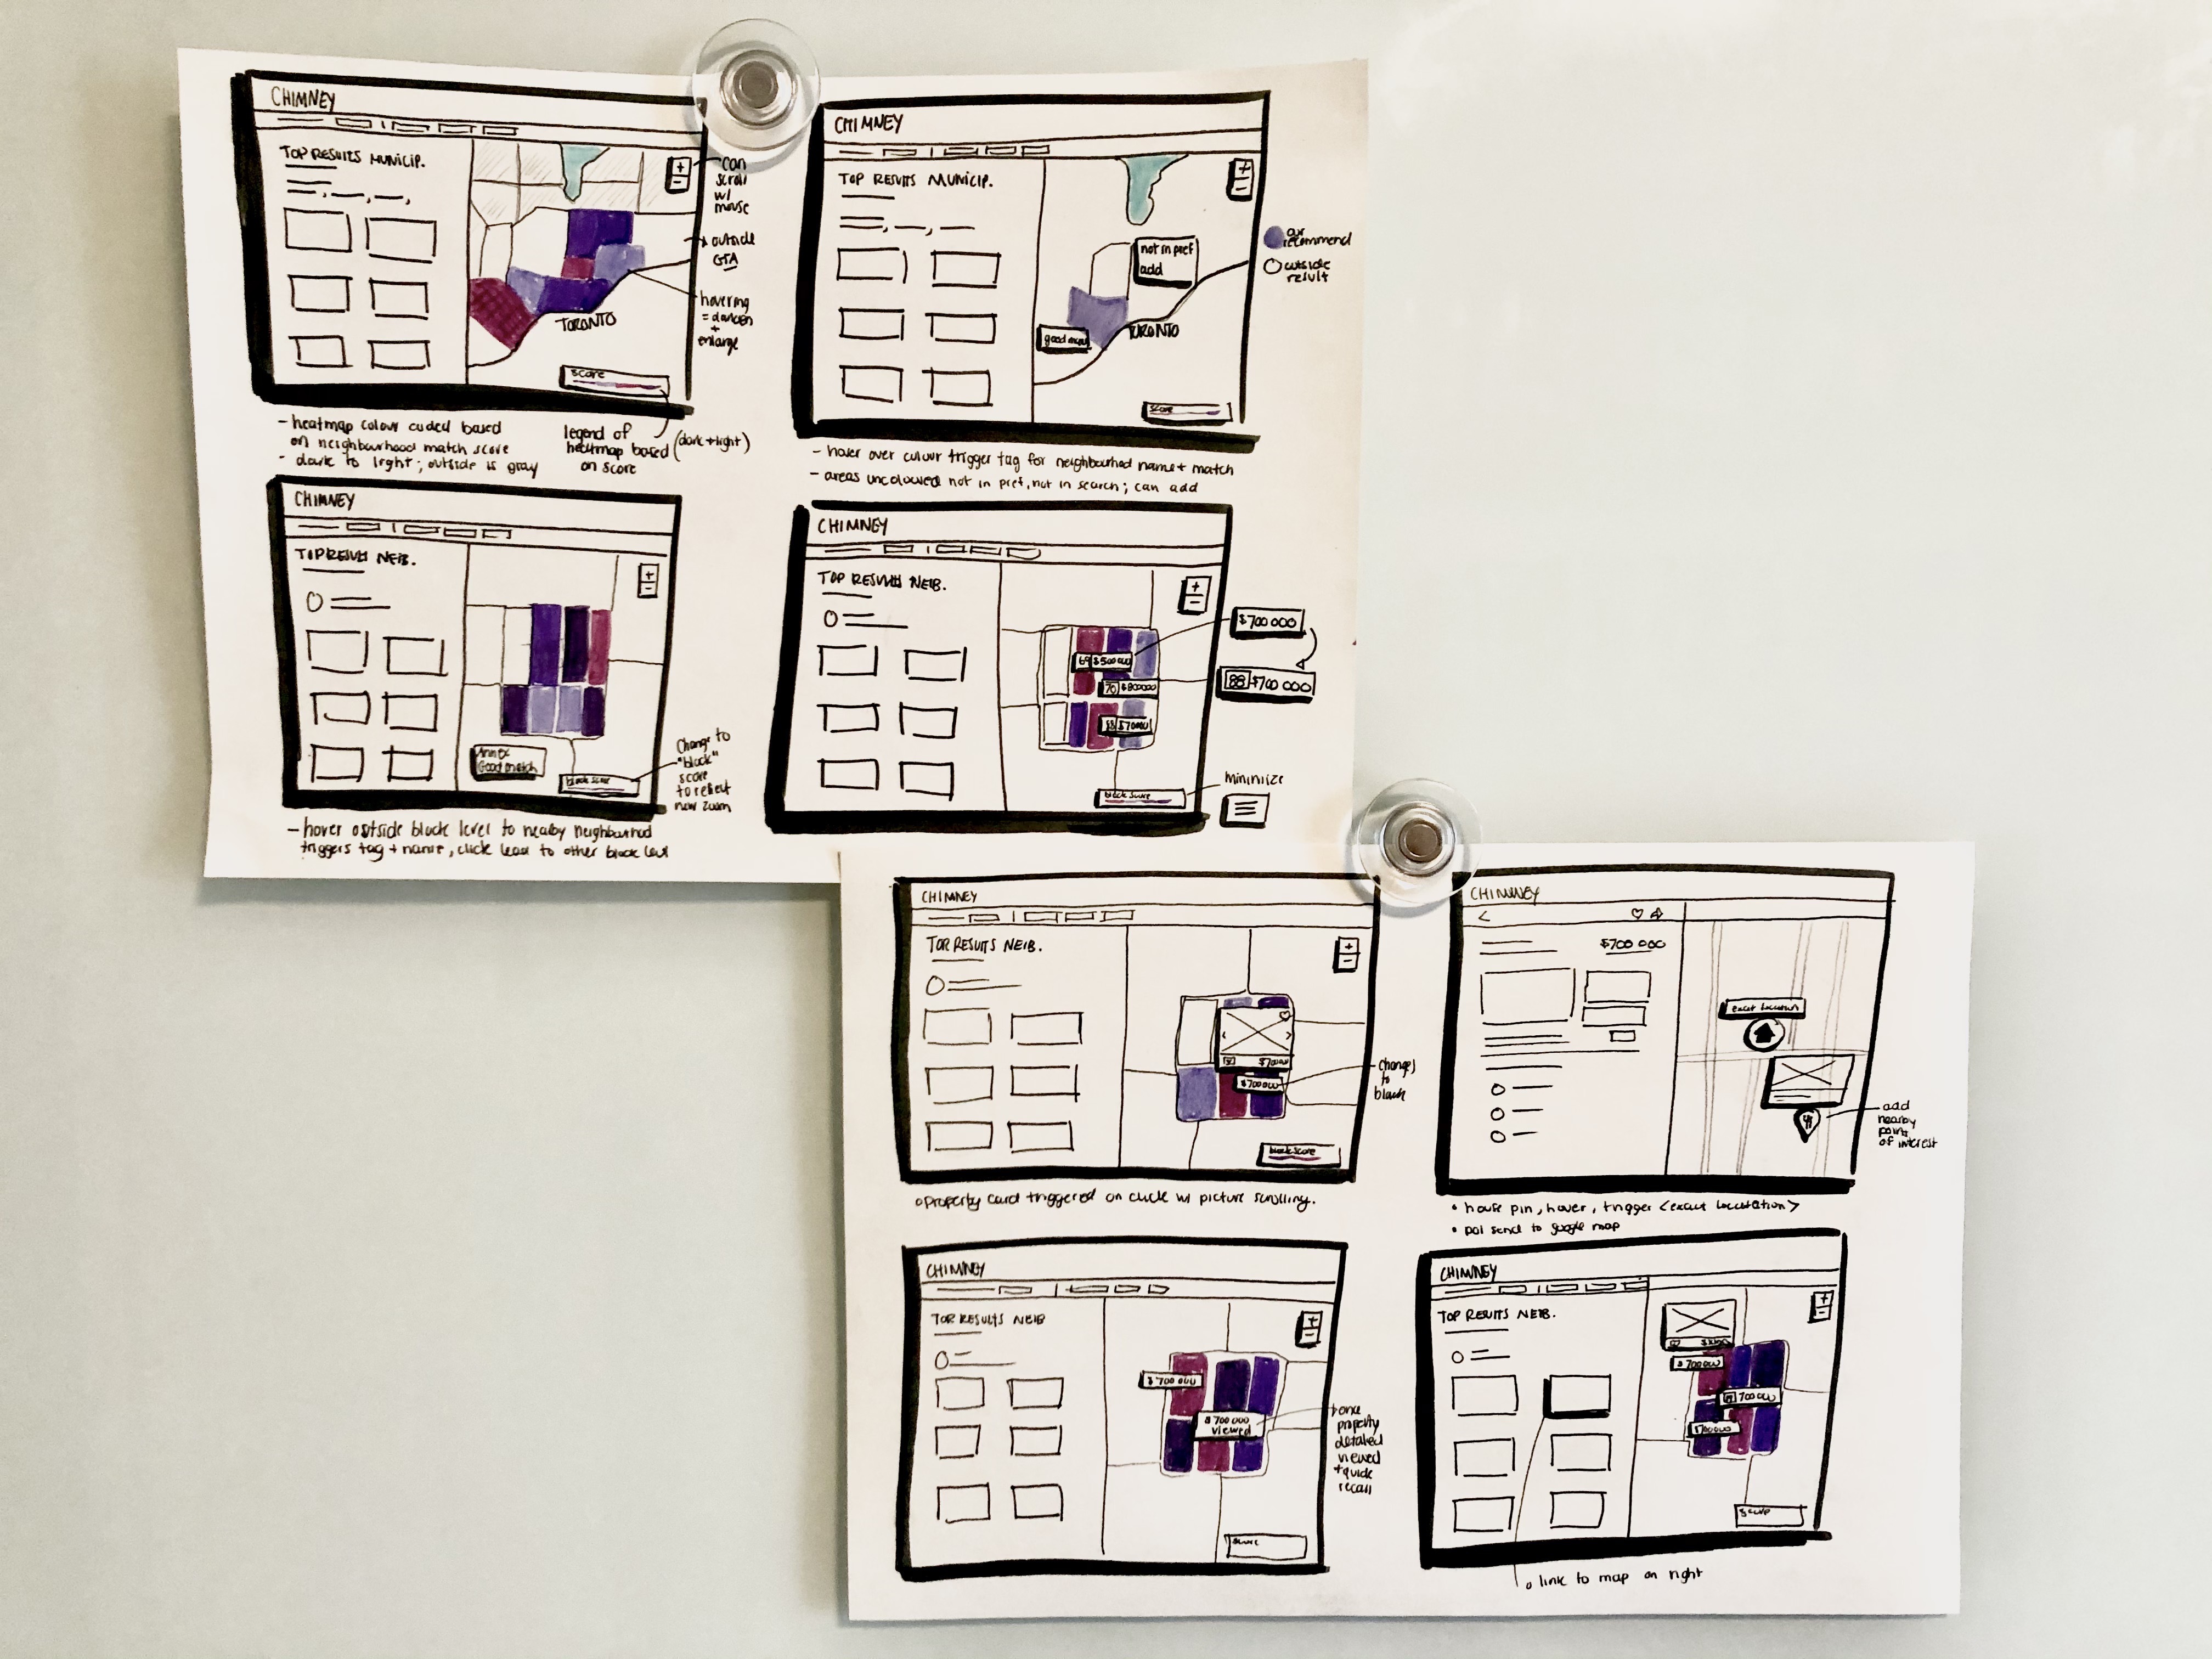 CHIMNEY
TOP RESULTS MUNICIP.
+
−
can
scroll
w/
mouse
outside
GTA
hovering
= darken
+
enlarge
TORONTO
score
- heatmap colour coded based
on neighbourhood match score
- dark to light; outside is gray
legend of
heatmap based
on score
(dark → light)
CHIMNEY
TOP RESULTS MUNICIP.
+
−
not in pref
add
good match
TORONTO
score
our
recommend
outside
result
- hover over colour trigger tag for neighbourhood name + match
- areas uncoloured not in pref, not in search; can add
CHIMNEY
TOP RESULTS NEIB.
+
−
Annex
Good match
block score
change to
"block"
score
to reflect
new zoom
- hover outside block level to nearby neighbourhood
triggers tag + name, click lead to other block level
CHIMNEY
TOP RESULTS NEIB.
+
−
69 $500 000
70 $800000
88 $700000
block score
$700 000
88 $700 000
minimize
CHIMNEY
TOP RESULTS NEIB.
+
−
$700000
$700000
block score
changes
to
black
o property card triggered on click w/ picture scrolling.
CHIMNEY
<
$700 000
exact location
add
nearby
point
of interest
• house pin, hover, trigger <exact location>
• poi send to google map
CHIMNEY
TOP RESULTS NEIB
+
−
$700 000
$700 000
viewed
score
once
property
detailed
viewed
+ quick
recall
CHIMNEY
TOP RESULTS NEIB.
+
−
$700000
700000
$700000
score
o link to map on right